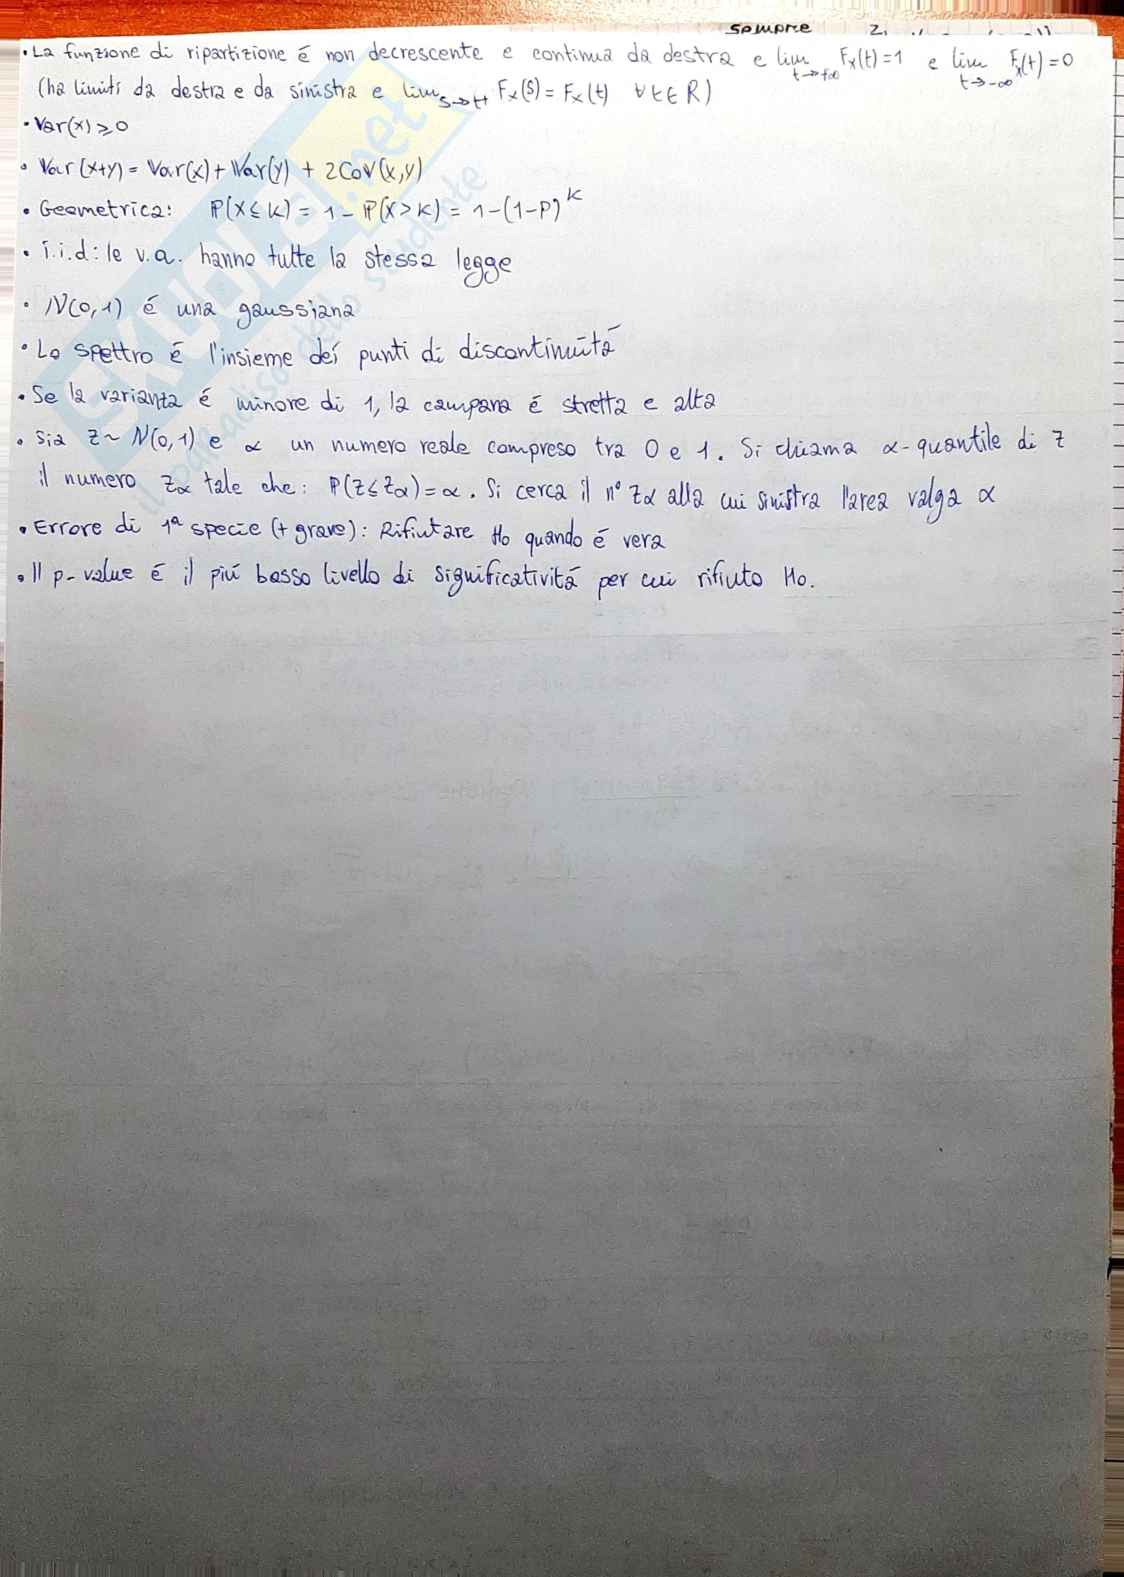 sempre
• La funzione di ripartizione é non decrescente e continua da destra e lim t→+∞ Fx(t)=1 e lim t→-∞ Fx(t)=0
(ha limiti da destra e da sinistra e lim s→t+ Fx(s) = Fx(t) ∀t∈R)
• Var(x)⩾0
• Var(x+y) = Var(x)+Var(y) + 2Cov(x,y)
• Geometrica: P(X≤K) = 1-P(X>K) = 1-(1-P)^K
• i.i.d: le v.a. hanno tutte la stessa legge
• N(0,1) é una gaussiana
• Lo spettro é l'insieme dei punti di discontinuitá
• Se la varianza é minore di 1, la campana é stretta e alta
• Sia Z~N(0,1) e α un numero reale compreso tra 0 e 1. Si chiama α-quantile di Z
il numero Zα tale che: P(Z≤Zα)=α. Si cerca il n° Zα alla cui sinistra l'area valga α
• Errore di 1ª specie (+ grave): Rifiutare Ho quando é vera
• Il p-value é il piú basso livello di significativitá per cui rifiuto Ho.
SKUOLA.net
il paradiso dello studente